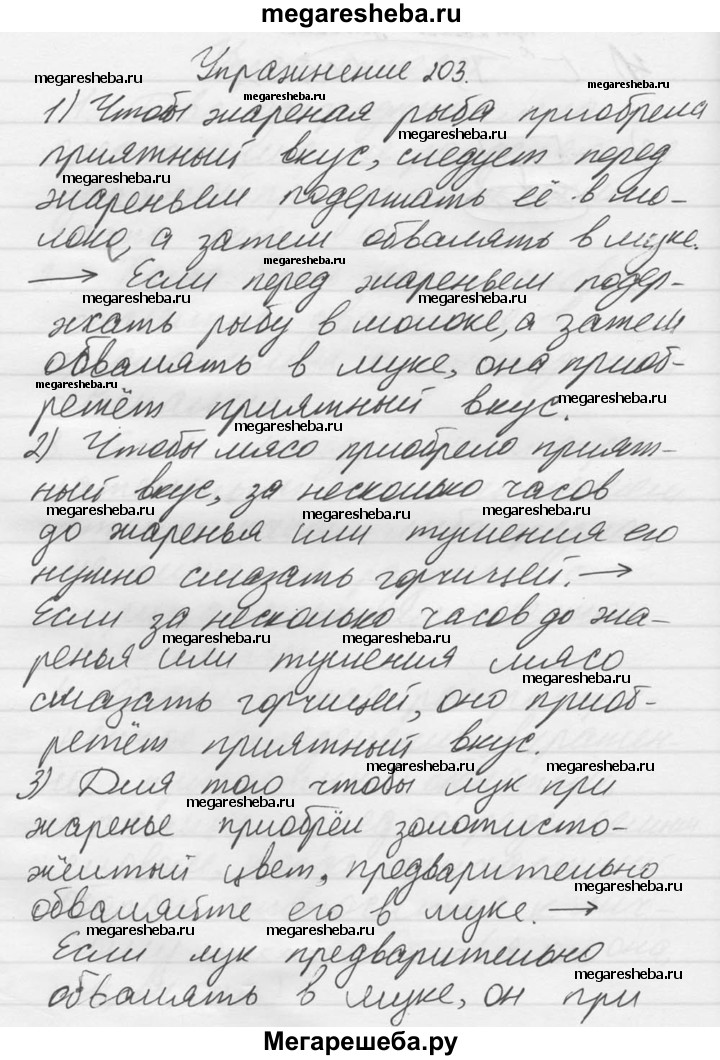 megaresheba.ru
Упражнение 203.
megaresheba.ru megaresheba.ru
megaresheba.ru
1) Чтобы жареная рыба приобрела
megaresheba.ru
приятный вкус, следует перед
megaresheba.ru
жареньем подержать её в мо-
megaresheba.ru
локо, а затем обвалять в муке.
megaresheba.ru
→ Если перед жареньем подер-
megaresheba.ru megaresheba.ru
жать рыбу в молоке, а затем
обвалять в муке, она приоб-
megaresheba.ru
megaresheba.ru
ретёт приятный вкус.
megaresheba.ru
2) Чтобы мясо приобрело прият-
ный вкус, за несколько часов
megaresheba.ru megaresheba.ru megaresheba.ru
до жаренья или тушения его
нужно смазать горчицей. →
Если за несколько часов до жа-
megaresheba.ru megaresheba.ru
ренья или тушения мясо
megaresheba.ru
смазать горчицей, оно приоб-
megaresheba.ru megaresheba.ru
ретёт приятный вкус.
megaresheba.ru
3) Для того чтобы лук при
megaresheba.ru megaresheba.ru
жаренье приобрёл золотисто-
жёлтый цвет, предварительно
megaresheba.ru
обваляйте его в муке. →
megaresheba.ru megaresheba.ru megaresheba.ru
Если лук предварительно
megaresheba.ru
обвалять в муке, он при
Мегарешеба.ру